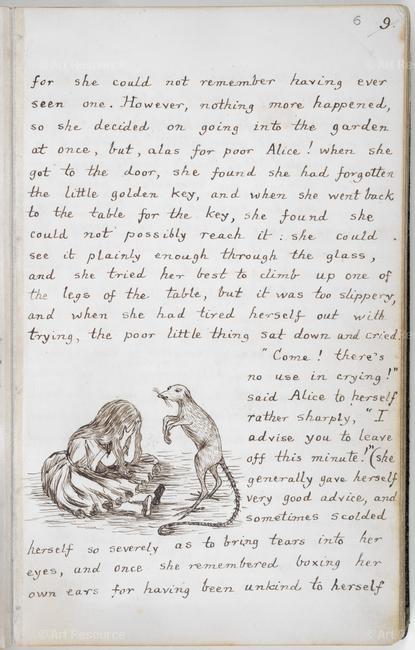 6 9.
for she could not remember having ever
seen one. However, nothing more happened,
so she decided on going into the garden
at once, but, alas for poor Alice! when she
got to the door, she found she had forgotten
the little golden key, and when she went back
to the table for the key, she found she
could not possibly reach it: she could
see it plainly enough through the glass,
and she tried her best to climb up one of
the legs of the table, but it was too slippery,
and when she had tired herself out with
trying, the poor little thing sat down and cried.
"Come! there's
no use in crying!"
said Alice to herself
rather sharply, "I
advise you to leave
off this minute!" (she
generally gave herself
very good advice, and
sometimes scolded
herself so severely as to bring tears into her
eyes, and once she remembered boxing her
own ears for having been unkind to herself
© Art Resource
© Art Resource